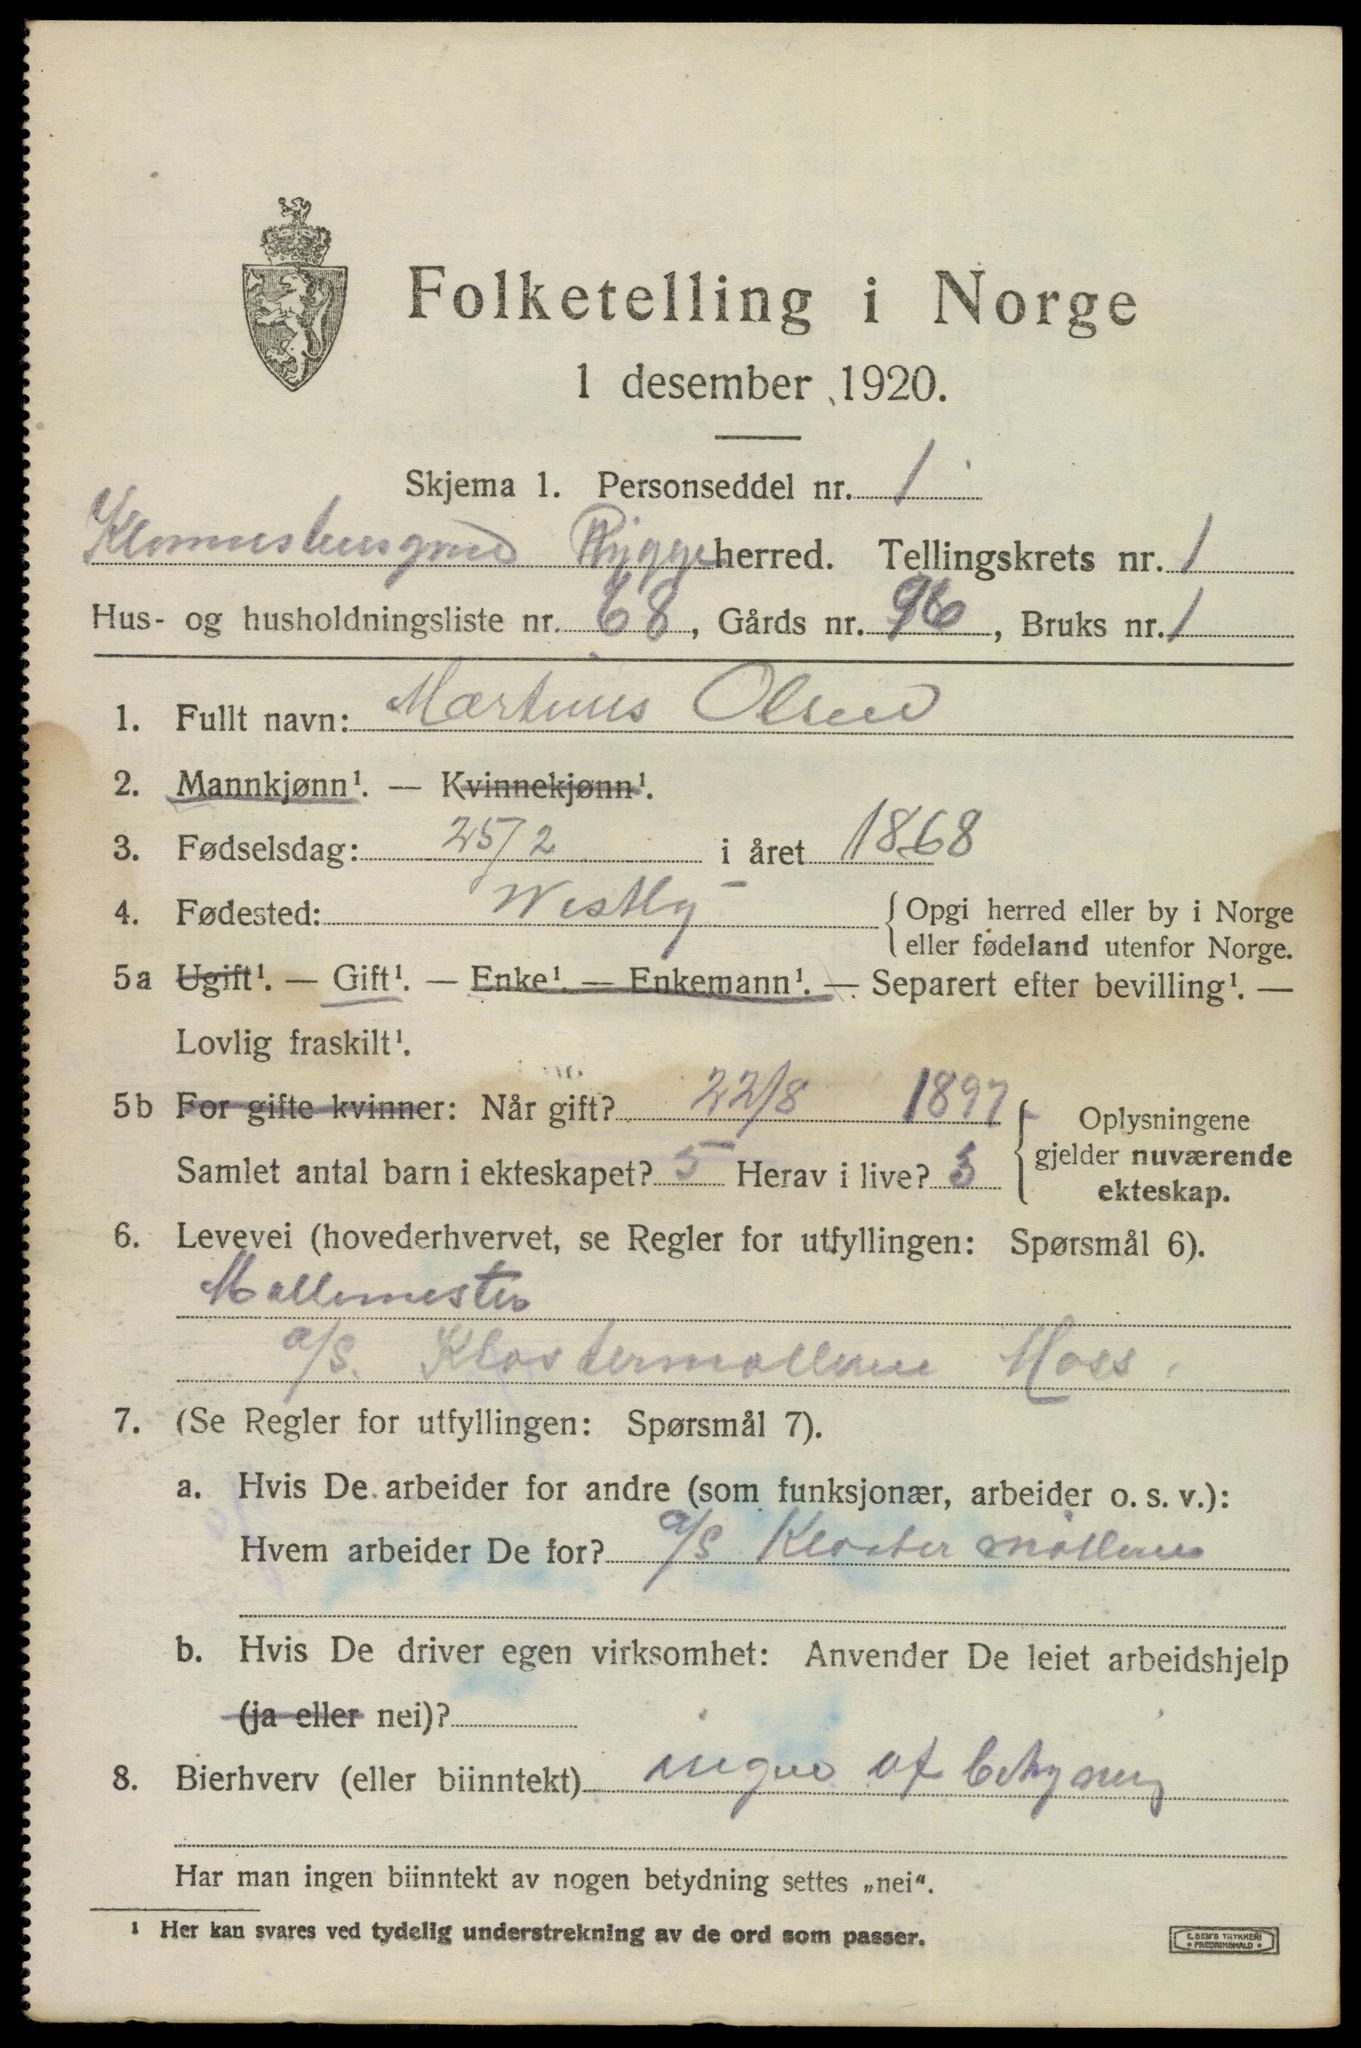 Folketelling i Norge
1 desember 1920.
Skjema 1. Personseddel nr. 1
Rygge herred. Tellingskrets nr. 1
Hus- og husholdningsliste nr. 68, Gårds nr. 96, Bruks nr. 1
1. Fullt navn: Martinus Olsen
2. Mannkjønn¹. — Kvinnekjønn¹.
3. Fødselsdag: 25/2 i året 1868
4. Fødested: Westby {Opgi herred eller by i Norge
eller fødeland utenfor Norge.
5a Ugift¹. — Gift¹. — Enke¹. — Enkemann¹. — Separert efter bevilling¹. —
Lovlig fraskilt¹.
5b For gifte kvinner: Når gift? 22/8 1897
Samlet antal barn i ekteskapet? 5 Herav i live? 5
{Oplysningene
gjelder nuværende
ekteskap.
6. Levevei (hovederhvervet, se Regler for utfyllingen: Spørsmål 6).
Møllemester
a/s. Klostermøllene Moss.
7. (Se Regler for utfyllingen: Spørsmål 7).
a. Hvis De arbeider for andre (som funksjonær, arbeider o. s. v.):
Hvem arbeider De for? a/s Kloster møllene
b. Hvis De driver egen virksomhet: Anvender De leiet arbeidshjelp
(ja eller nei)?
8. Bierhverv (eller biinntekt) ingen af betydning
Har man ingen biinntekt av nogen betydning settes „nei".
¹ Her kan svares ved tydelig understrekning av de ord som passer.
E. SEM'S TRYKKERI
• FREDRIKSHALD •